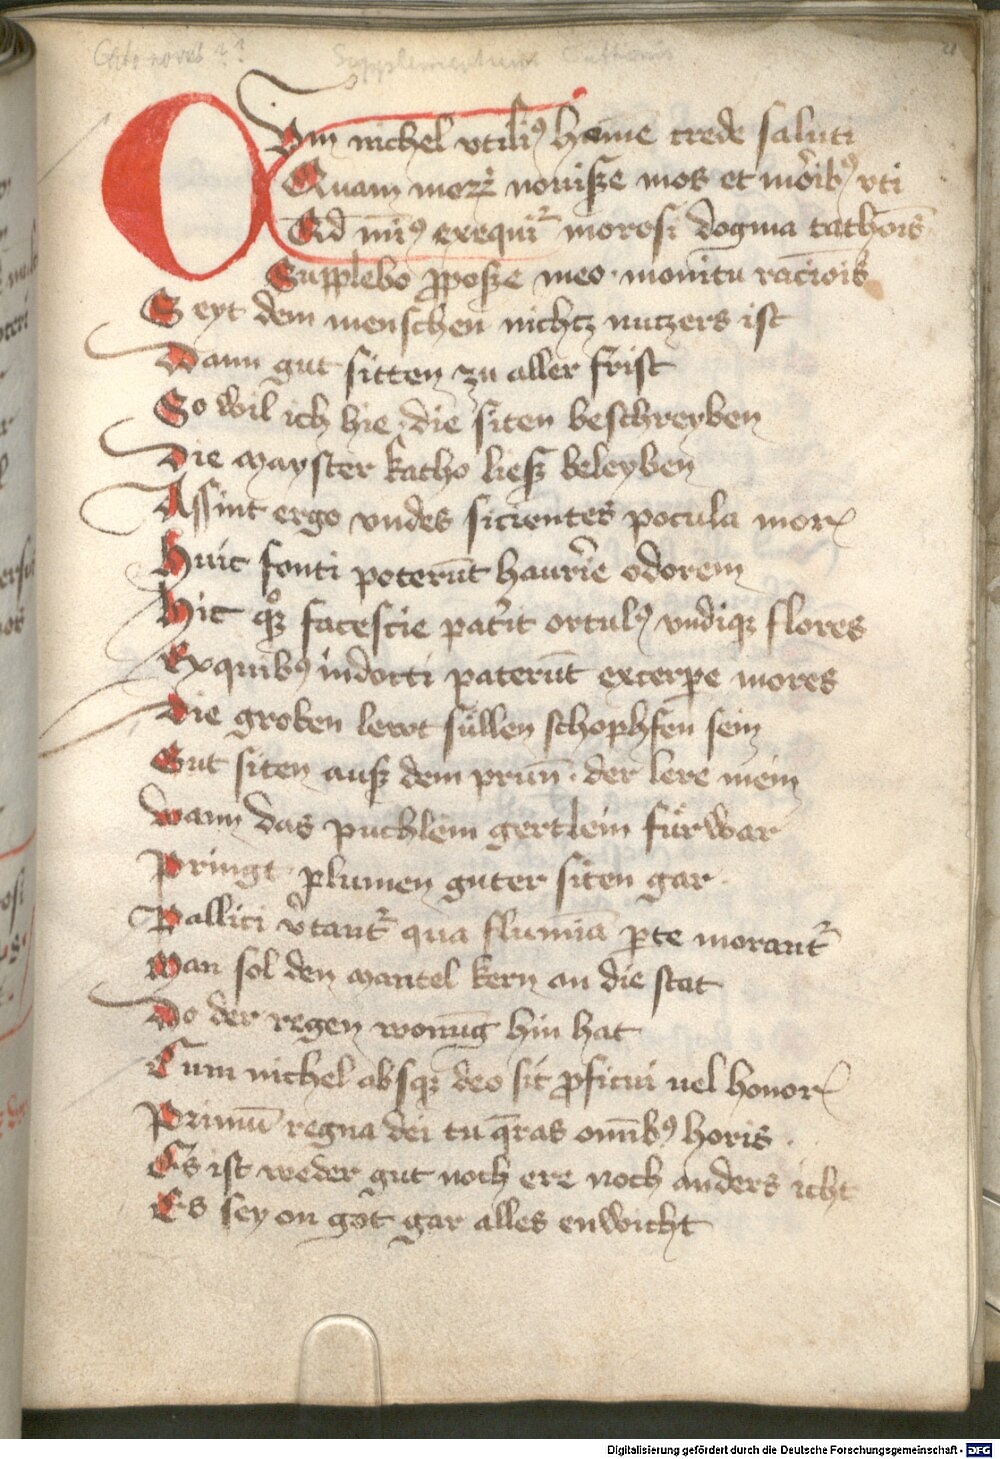 Cato novus ??   Supplementum Cathonis
Cum nichel utiliꝰ hōine crede saluti
Quam moꝝ novisse mos et mōribꝰ vti
Qd̄ miꝰ exequiᷣ morosi dogma cathoīs
Supplebo ꝓposse meo · monitu racioīs
Seyt dem menschen nichcz nuczers ist
Dann gut sitten zu aller frist
So wil ich hie die siten beschreyben
Die mayster katho liesz beleyben
Assint ergo vndes sicientes pocula moꝝ
Huic fonti poterūt haurīe odorem
Hic qͦꝫ facescie pat̄it ortulꝰ vndiqꝫ flores
Ex quibꝰ indocti paterūt excerpe mores
Die groben lewt süllen schophfen sein
Gut siten ausz dem prun̄ · der lere mein
Wann das puchlein gertlein fürwar
Pringt plumen guter siten gar
Pallici v̄tantᷣ qua flumīa ꝑte morantᷣ
Man sol den mantel kern an die stat
Do der regen wonūg hin hat
Cum nichel absqꝫ deo sit ꝓficui uel honoꝝ
Primū regna dei tu q̄ras om̄ibꝰ horis ·
Es ist weder gut noch ere noch anders icht
Es sey on got gar alles enwicht
Digitalisierung gefördert durch die Deutsche Forschungsgemeinschaft - DFG